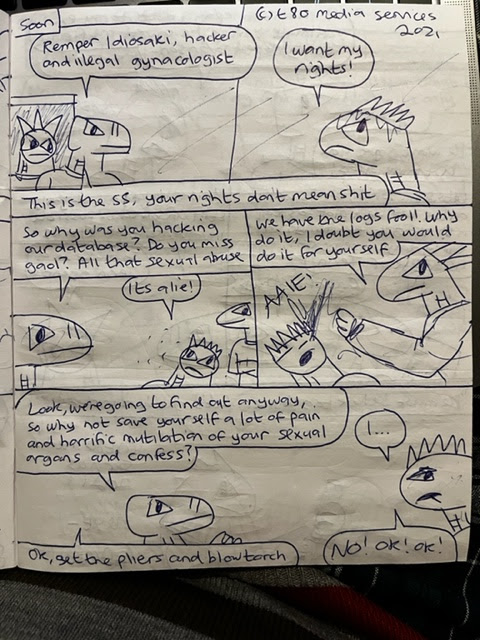 Soon
(C) t80 media services
2021
Remper Idiosaki, hacker
and illegal gynacologist
I want my
rights!
This is the SS, your rights don't mean shit
So why was you hacking
our database? Do you miss
gaol? All that sexual abuse
Its a lie!
We have the logs fool. Why
do it, I doubt you would
do it for yourself
AAIE!
Look, we're going to find out anyway,
so why not save yourself a lot of pain
and horrific mutilation of your sexual
organs and confess?
I...
Ok, get the pliers and blowtorch
No! ok! ok!